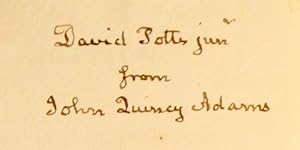 David Potts junr
from
John Quincy Adams